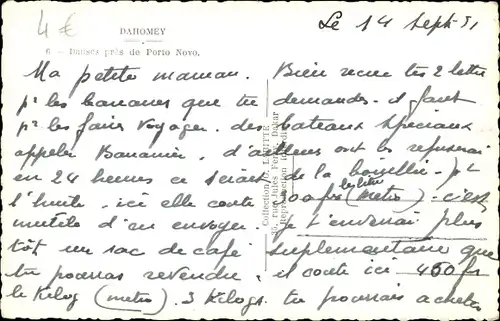 4 €
DAHOMEY
Le 14 Sept. 51
6 - Danses près de Porto Novo.
Ma petite maman. Bien reçue tes 2 lettres
pr les bananes que tu demandes. il faut
pr les faire voyager des bateaux spéciaux
appeler Bananier, d'ailleurs ont les refuserai
en 24 heures ce serait de la bouillie. pr
l'huile. ici elle coute 300frs le litre (metro) - c'est
inutile d'en envoyer. Je t'enverrai plus
tôt un sac de café supplementaire que
tu pourras revendre, il coute ici 460frs
le Kilog (metro). 3 Kilogs. tu pourrais acheter
Collection G. LABITTE
35, rue Jules Ferry, Dakar
Reproduction interdite